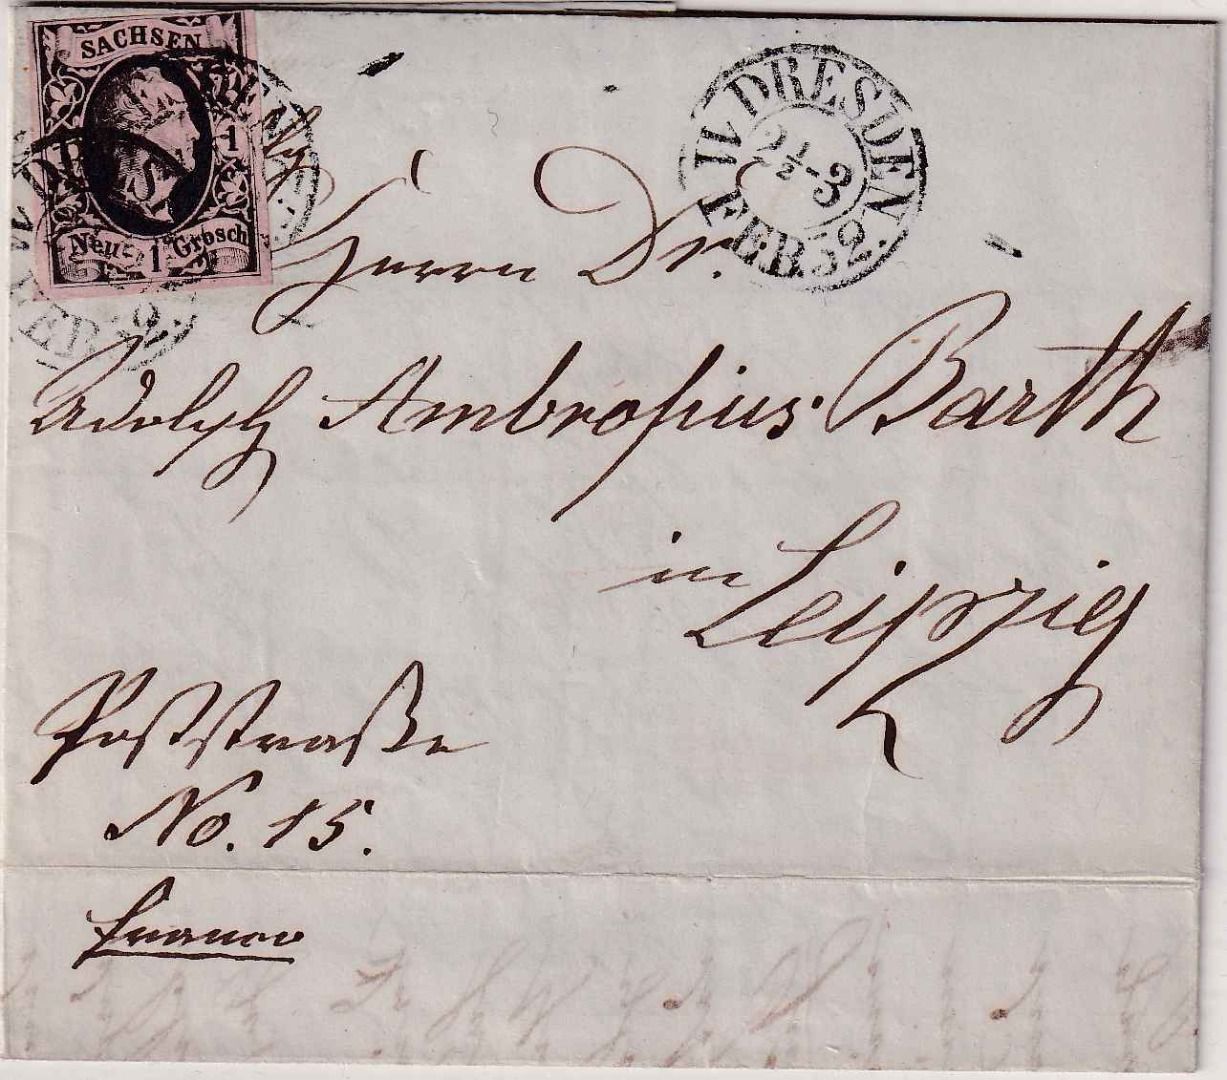 SACHSEN
1
Neu- 1 Grosch
W. DRESDEN
2½-3
FEB. 52.
Herrn Dr.
Adolph Ambrosius Barth
in Leipzig
Poststraße
No. 15.
franco